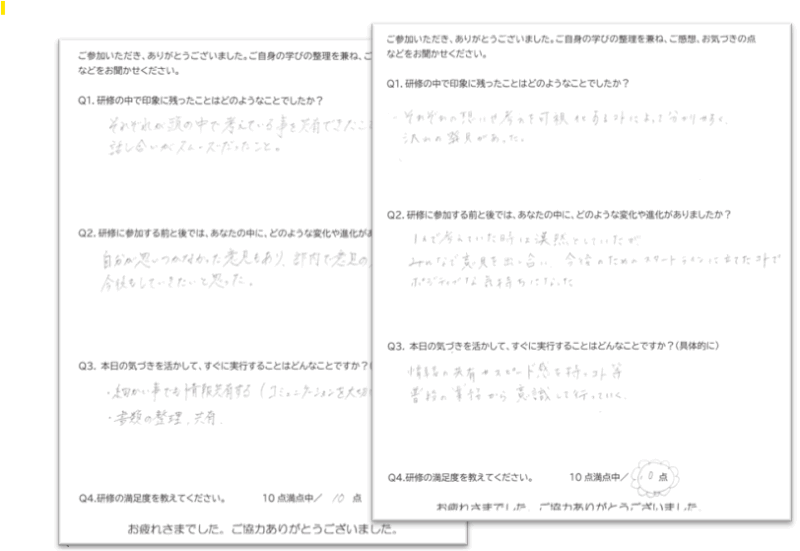 ご参加いただき、ありがとうございました。ご自身の学びの整理を兼ね、ご
などをお聞かせください。
Q1. 研修の中で印象に残ったことはどのようなことでしたか？
それぞれが頭の中で考えている事を共有できたこ
話し合いがスムーズだったこと。
Q2. 研修に参加する前と後では、あなたの中に、どのような変化や進化があ
自分が思いつかなかった意見もあり、部内で意見の
今後もしていきたいと思った。
Q3. 本日の気づきを活かして、すぐに実行することはどんなことですか？(
・細かい事でも情報共有する(コミュニケーションを大切
・書類の整理、共有
Q4.研修の満足度を教えてください。 10点満点中／ 10 点
お疲れさまでした。ご協力ありがとうございました。
ご参加いただき、ありがとうございました。ご自身の学びの整理を兼ね、ご感想、お気づきの点
などをお聞かせください。
Q1. 研修の中で印象に残ったことはどのようなことでしたか？
・それぞれの想いや考えを可視化することによって分かりやすく、
沢山の意見があった。
Q2. 研修に参加する前と後では、あなたの中に、どのような変化や進化がありましたか？
1人で考えていた時は漠然としていたが
みんなで意見を出し合い、今後のためのスタートラインに立てたことで
ポジティブな気持ちになった
Q3. 本日の気づきを活かして、すぐに実行することはどんなことですか？(具体的に)
情報の共有やスピード感を持つこと等
普段の業務から意識して行っていく。
Q4.研修の満足度を教えてください。 10点満点中／ 10 点
お疲れさまでした。ご協力ありがとうございました。